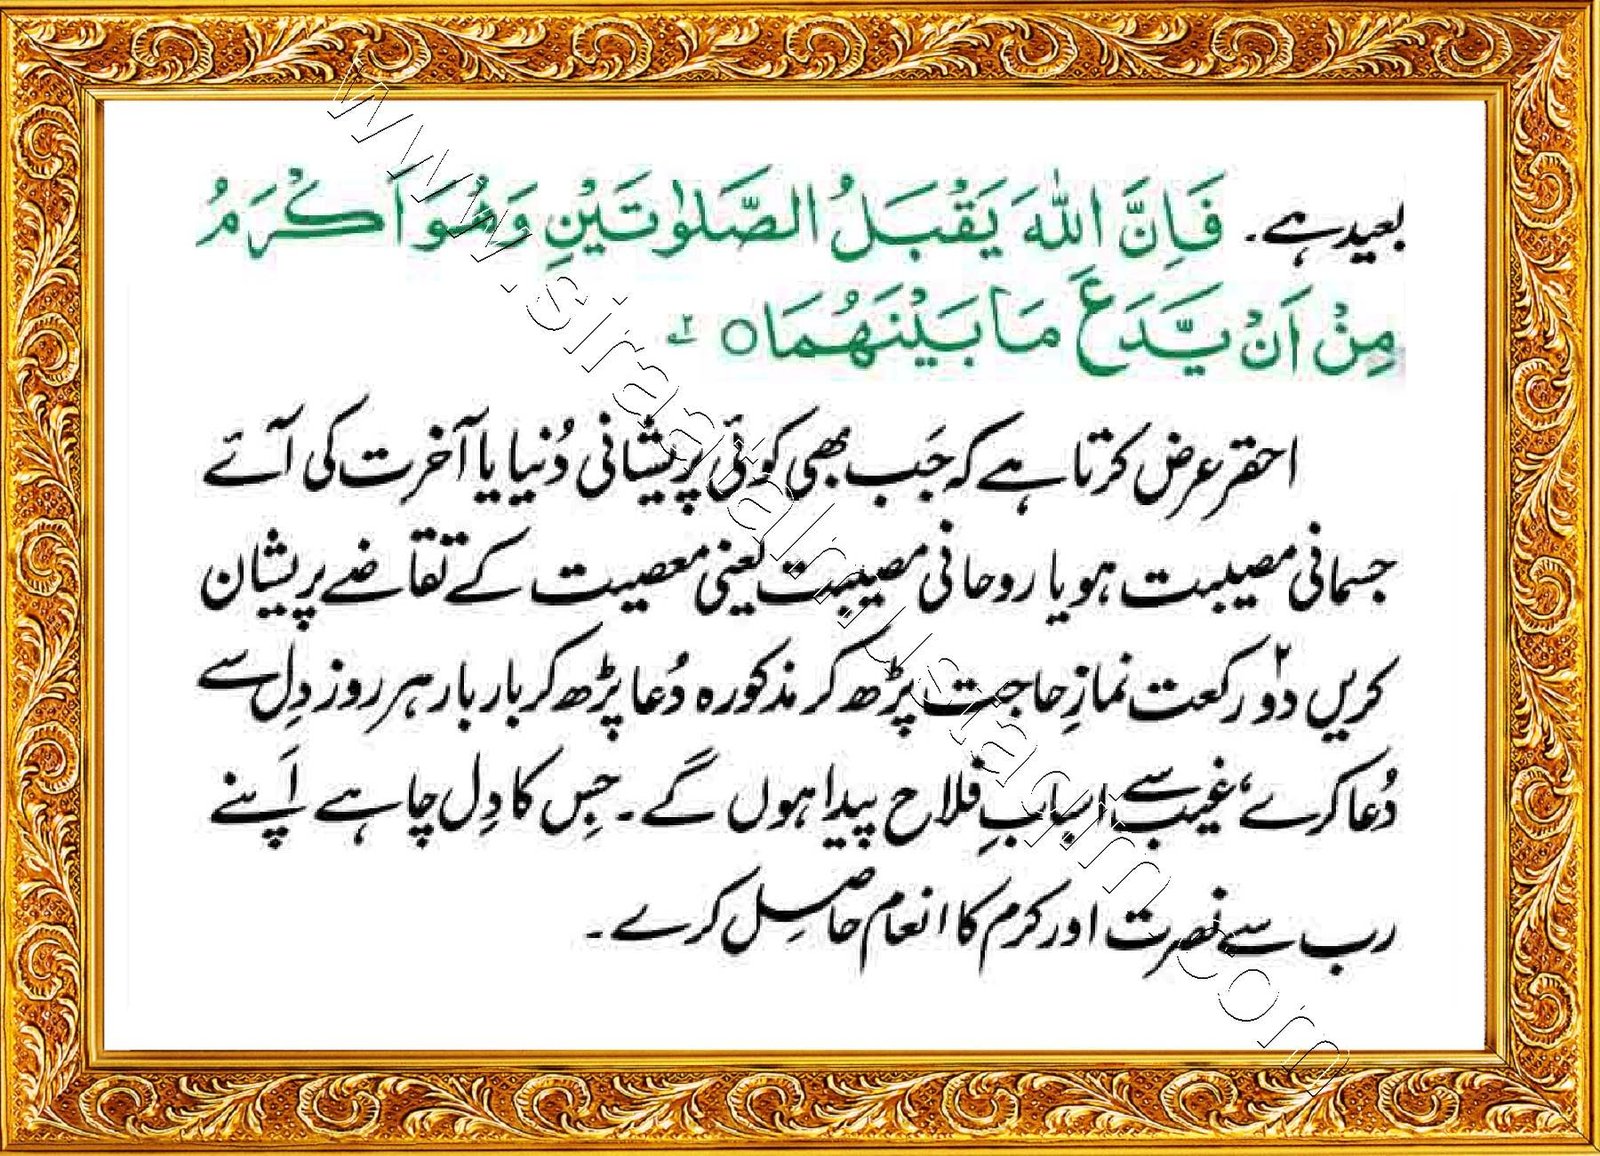 بعید ہے۔ فَاِنَّ اللّٰهَ يَقْبَلُ الصَّلٰوتَيْنِ وَهُوَ اَكْرَمُ
مِنْ اَنْ يَّدَعَ مَا بَيْنَهُمَا ○ ؂۲
احقر عرض کرتا ہے کہ جَب بھی کوئی پریشانی دُنیا یا آخرت کی آئے
جسمانی مصیبت ہو یا روحانی مصیبت یعنی معصیت کے تقاضے پریشان
کریں دو۲ رکعت نمازِ حاجت پڑھ کر مذکورہ دُعا پڑھ کر بار بار ہر روز دِل سے
دُعا کرے، غیب سے اسبابِ فلاح پیدا ہوں گے۔ جِس کا دِل چاہے اَپنے
رب سے نصرت اور کرم کا انعام حاصِل کرے۔
www.siraatalmustaqim.com